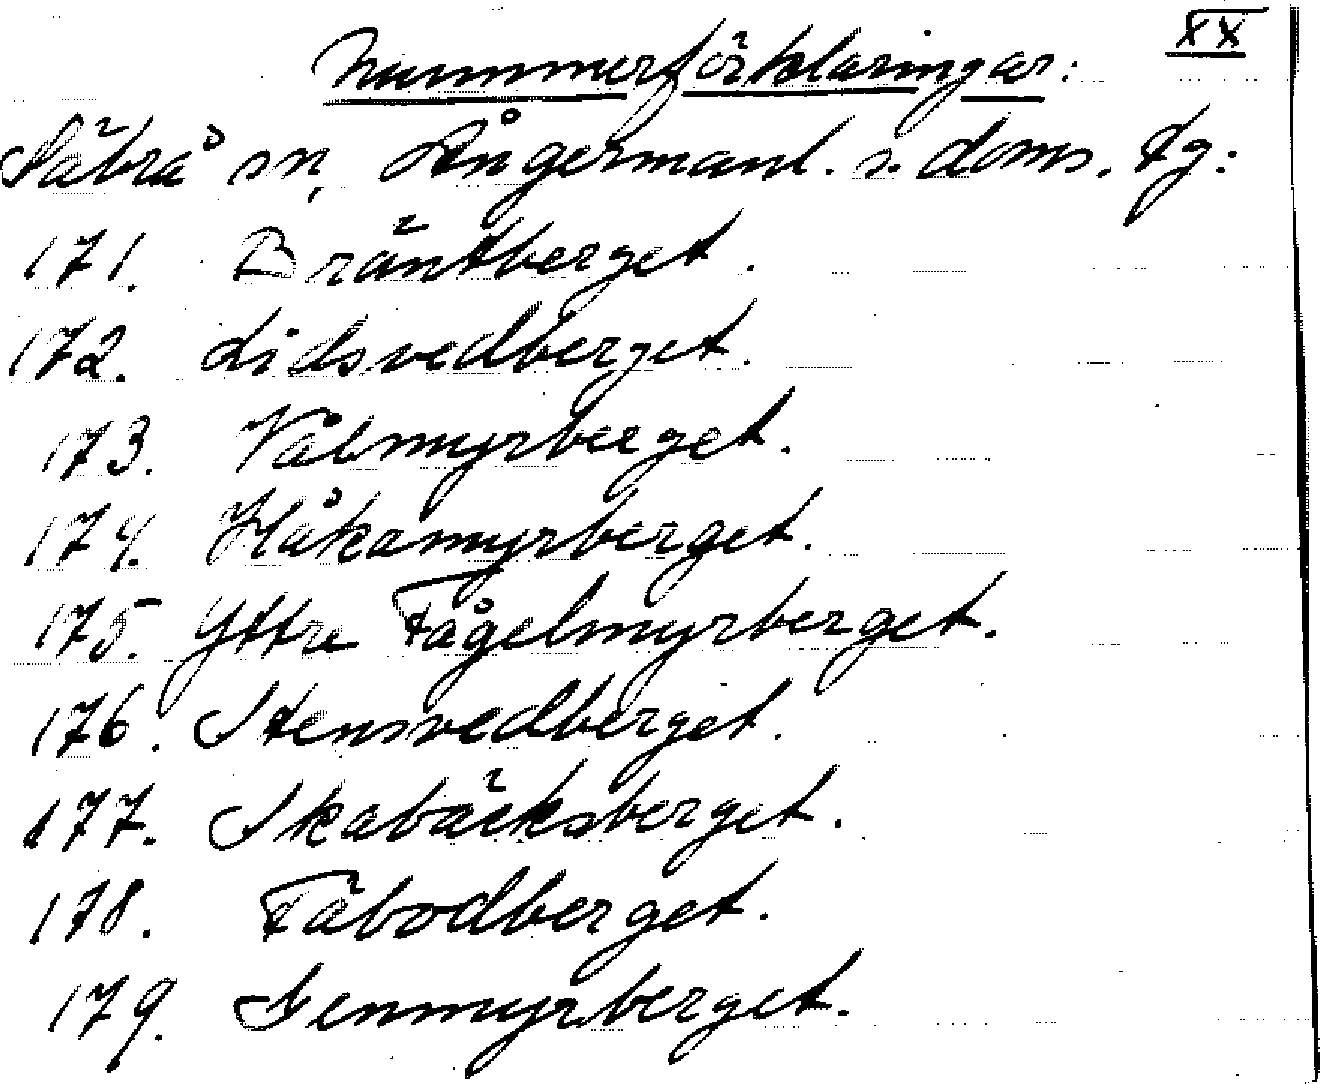 XX
Nummerförklaringar:
Säbrå sn, Ångermanl. s. doms. tg:
171. Bräntberget.
172. Lidsvedberget.
173. Vålmyrberget.
174. Håkamyrberget.
175. Yttre Fågelmyrberget.
176. Stensvedberget.
177. Skabäcksberget.
178. Fäbodberget.
179. Genmyrberget.